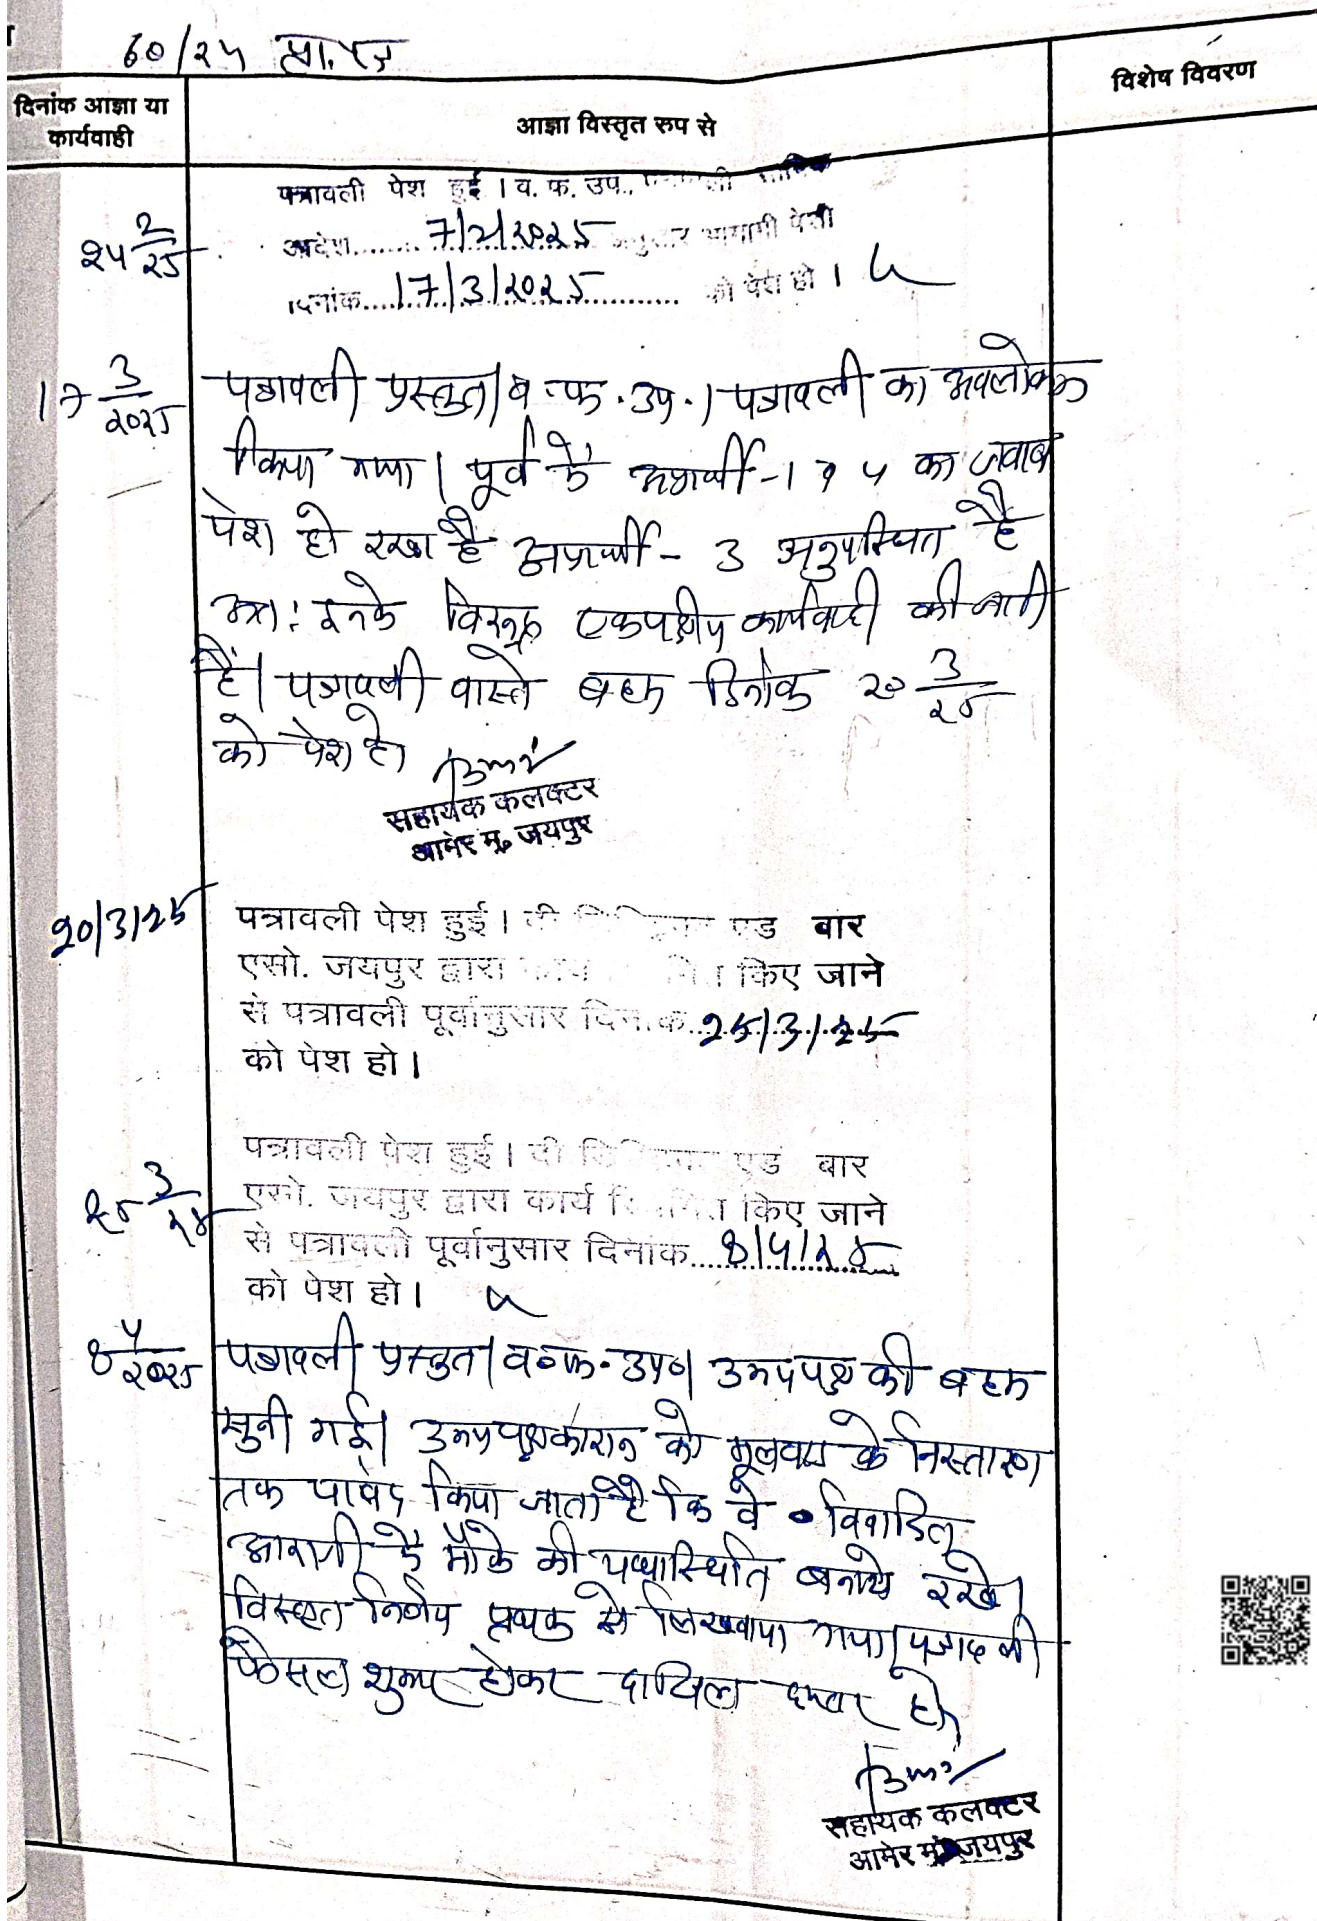 60/24 प्रा.पत्र
दिनांक आज्ञा या
कार्यवाही
आज्ञा विस्तृत रुप से
विशेष विवरण
पत्रावली पेश हुई । व. फ. उप..
24 2/25
आदेश....... 7/2/2025 अनुसार आगामी पेशी
दिनांक.... 17/3/2025 ........ को पेश हो ।
17 3/2025
पत्रावली प्रस्तुत। व.फ.उप.। पत्रावली का अवलोकन
किया गया। पूर्व में अप्रार्थी-1 व 4 का जवाब
पेश हो रखा है अप्रार्थी- 3 अनुपस्थित है
अतः इनके विरूद्ध एकपक्षीय कार्यवाही की जाती
है। पत्रावली वास्ते बहस दिनांक 20 3/25
को पेश हो
सहायक कलक्टर
आमेर मु. जयपुर
20/3/25
पत्रावली पेश हुई । दी एड बार
एसो. जयपुर द्वारा किए जाने
से पत्रावली पूर्वानुसार दिनांक..25/3/25
को पेश हो ।
पत्रावली पेश हुई । दी एड बार
25 3/25
एसो. जयपुर द्वारा कार्य स्थगित किए जाने
से पत्रावली पूर्वानुसार दिनांक...8/4/25
को पेश हो ।
8 4/2025
पत्रावली प्रस्तुत। व०फ.उप०। उभयपक्ष की बहस
सुनी गई। उभयपक्षकारान को मूलवाद के निस्तारण
तक पाबंद किया जाता है कि वे विवादित
आराजी में मौके की यथास्थिति बनाये रखे।
विस्तृत निर्णय पृथक से लिखवाया गया।
फैसल शुमार होकर दाखिल दफ्तर हो
सहायक कलक्टर
आमेर मु. जयपुर